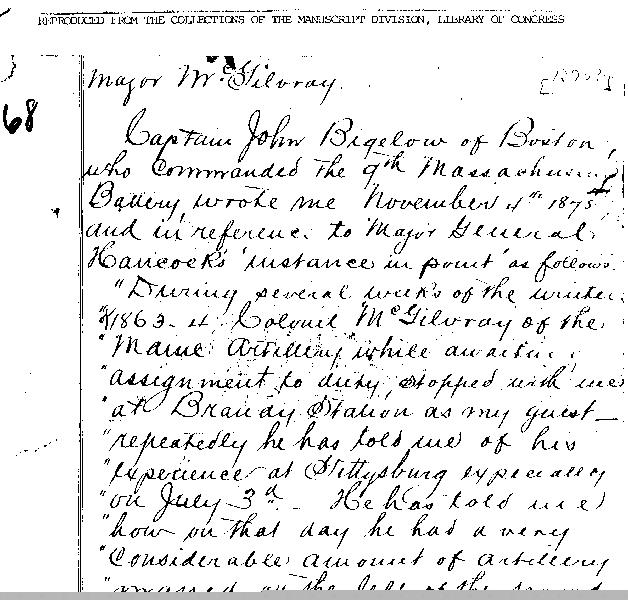 REPRODUCED FROM THE COLLECTIONS OF THE MANUSCRIPT DIVISION, LIBRARY OF CONGRESS
Major McGilvray.
68
Captain John Bigelow of Boston,
who commanded the 9th Massachusetts
Battery wrote me November 4th 1875,
and in reference to Major General
Hancock's 'instance in point' as follows.
"During several weeks of the winter
"of 1863-4 Colonel McGilvray of the
"Maine Artillery while awaiting
"assignment to duty, stopped with me
"at Brandy Station, as my guest—
"repeatedly he has told me of his
"experience at Gettysburg especially
"on July 3d. He has told me
"how on that day he had a very
"considerable amount of artillery
on the left of the second